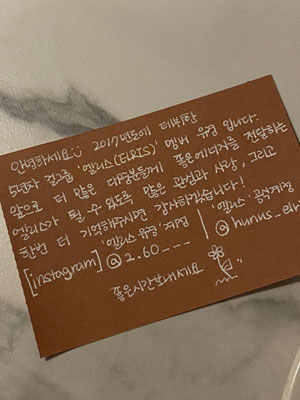 안녕하세요 :) 2017년도에 데뷔한
5년차 걸그룹 '엘리스(ELRIS)' 멤버 유경 입니다.
앞으로 더 많은 대중분들께 좋은에너지를 전달하는
엘리스가 될 수 있도록 많은 관심과 사랑, 그리고
한번 더 기억해주시면 감사하겠습니다!
'엘리스 유경' 계정 | '엘리스' 공식계정
[instagram] @2.60___ | @hunus_elris
좋은시간보내세요